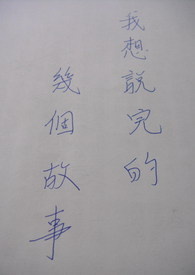 我想說完的
幾個故事